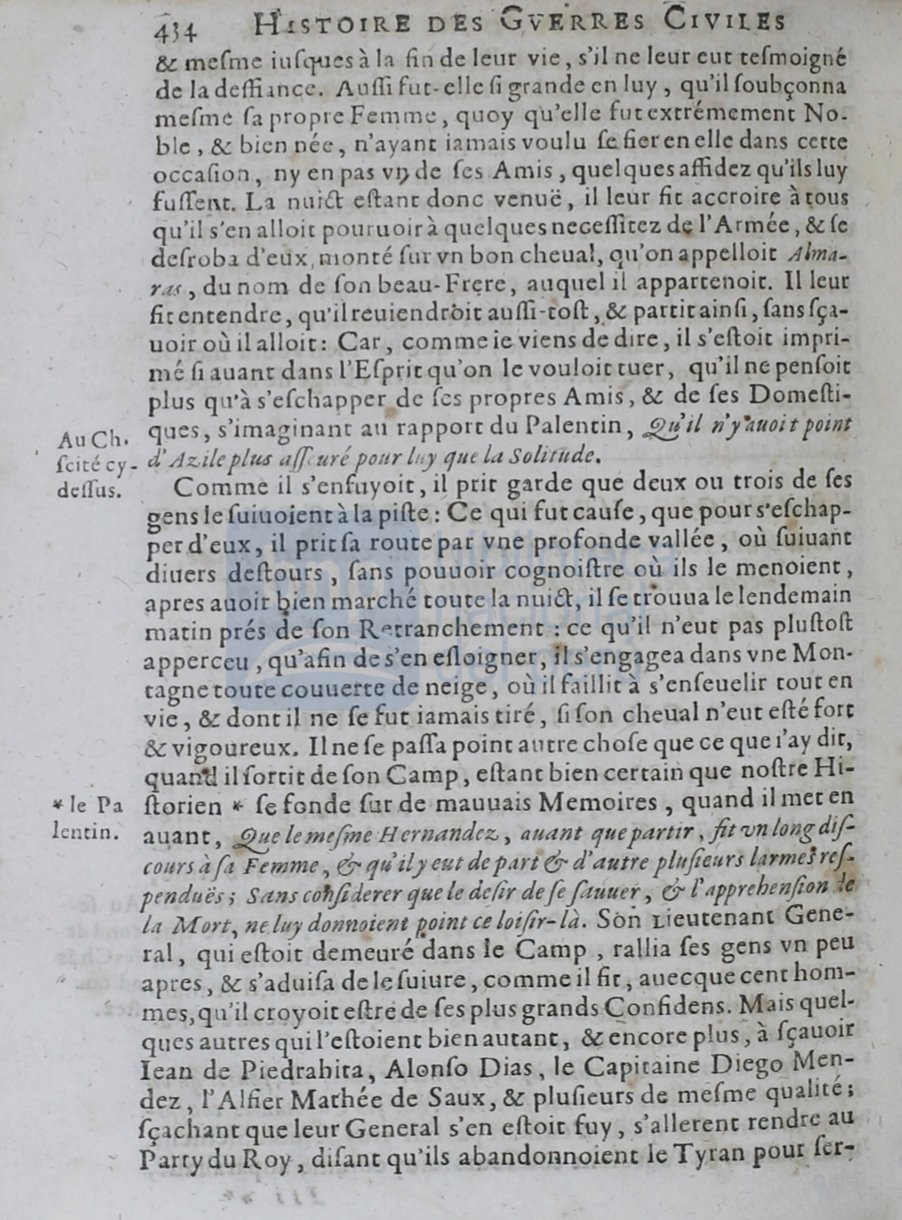 434 HISTOIRE DES GVERRES CIVILES
& meſme iuſques à la fin de leur vie, s'il ne leur eut teſmoigné
de la deffiance. Auſſi fut-elle ſi grande en luy, qu'il ſoubçonna
meſme ſa propre Femme, quoy qu'elle fut extrémement No-
ble, & bien née, n'ayant iamais voulu ſe fier en elle dans cette
occaſion, ny en pas vn de ſes Amis, quelques affidez qu'ils luy
fuſſent. La nuict eſtant donc venuë, il leur fit accroire à tous
qu'il s'en alloit pouruoir à quelques neceſſitez de l'Armée, & ſe
deſroba d'eux, monté ſur vn bon cheual, qu'on appelloit Alma-
ras, du nom de ſon beau-Frere, auquel il appartenoit. Il leur
fit entendre, qu'il reuiendroit auſſi-toſt, & partit ainſi, ſans ſça-
uoir où il alloit: Car, comme ie viens de dire, il s'eſtoit impri-
mé ſi auant dans l'Eſprit qu'on le vouloit tuer, qu'il ne penſoit
plus qu'à s'eſchapper de ſes propres Amis, & de ſes Domeſti-
ques, s'imaginant au rapport du Palentin, Qu'il n'y auoit point
d'Azile plus aſſeuré pour luy que la Solitude.
Au Ch.
ſcité cy-
deſſus.
Comme il s'enfuyoit, il prit garde que deux ou trois de ſes
gens le ſuiuoient à la piſte: Ce qui fut cauſe, que pour s'eſchap-
per d'eux, il prit ſa route par vne profonde vallée, où ſuiuant
diuers deſtours, ſans pouuoir cognoiſtre où ils le menoient,
apres auoir bien marché toute la nuict, il ſe trouua le lendemain
matin prés de ſon Retranchement: ce qu'il n'eut pas pluſtoſt
apperceu, qu'afin de s'en eſloigner, il s'engagea dans vne Mon-
tagne toute couuerte de neige, où il faillit à s'enſeuelir tout en
vie, & dont il ne ſe fut iamais tiré, ſi ſon cheual n'eut eſté fort
& vigoureux. Il ne ſe paſſa point autre choſe que ce que i'ay dit,
quand il ſortit de ſon Camp, eſtant bien certain que noſtre Hi-
ſtorien * ſe fonde ſur de mauuais Memoires, quand il met en
auant, Que le meſme Hernandez, auant que partir, fit vn long diſ-
cours à ſa Femme, & qu'il y eut de part & d'autre pluſieurs larmes reſ-
penduës; Sans conſiderer que le deſir de ſe ſauuer, & l'apprehenſion de
la Mort, ne luy donnoient point ce loiſir-là. Son Lieutenant Gene-
* le Pa
lentin.
ral, qui eſtoit demeuré dans le Camp, rallia ſes gens vn peu
apres, & s'aduiſa de le ſuiure, comme il fit, auecque cent hom-
mes, qu'il croyoit eſtre de ſes plus grands Confidens. Mais quel-
ques autres qui l'eſtoient bien autant, & encore plus, à ſçauoir
Iean de Piedrahita, Alonſo Dias, le Capitaine Diego Men-
dez, l'Alfier Mathée de Saux, & pluſieurs de meſme qualité;
ſçachant que leur General s'en eſtoit fuy, s'allerent rendre au
Party du Roy, diſant qu'ils abandonnoient le Tyran pour ſer-